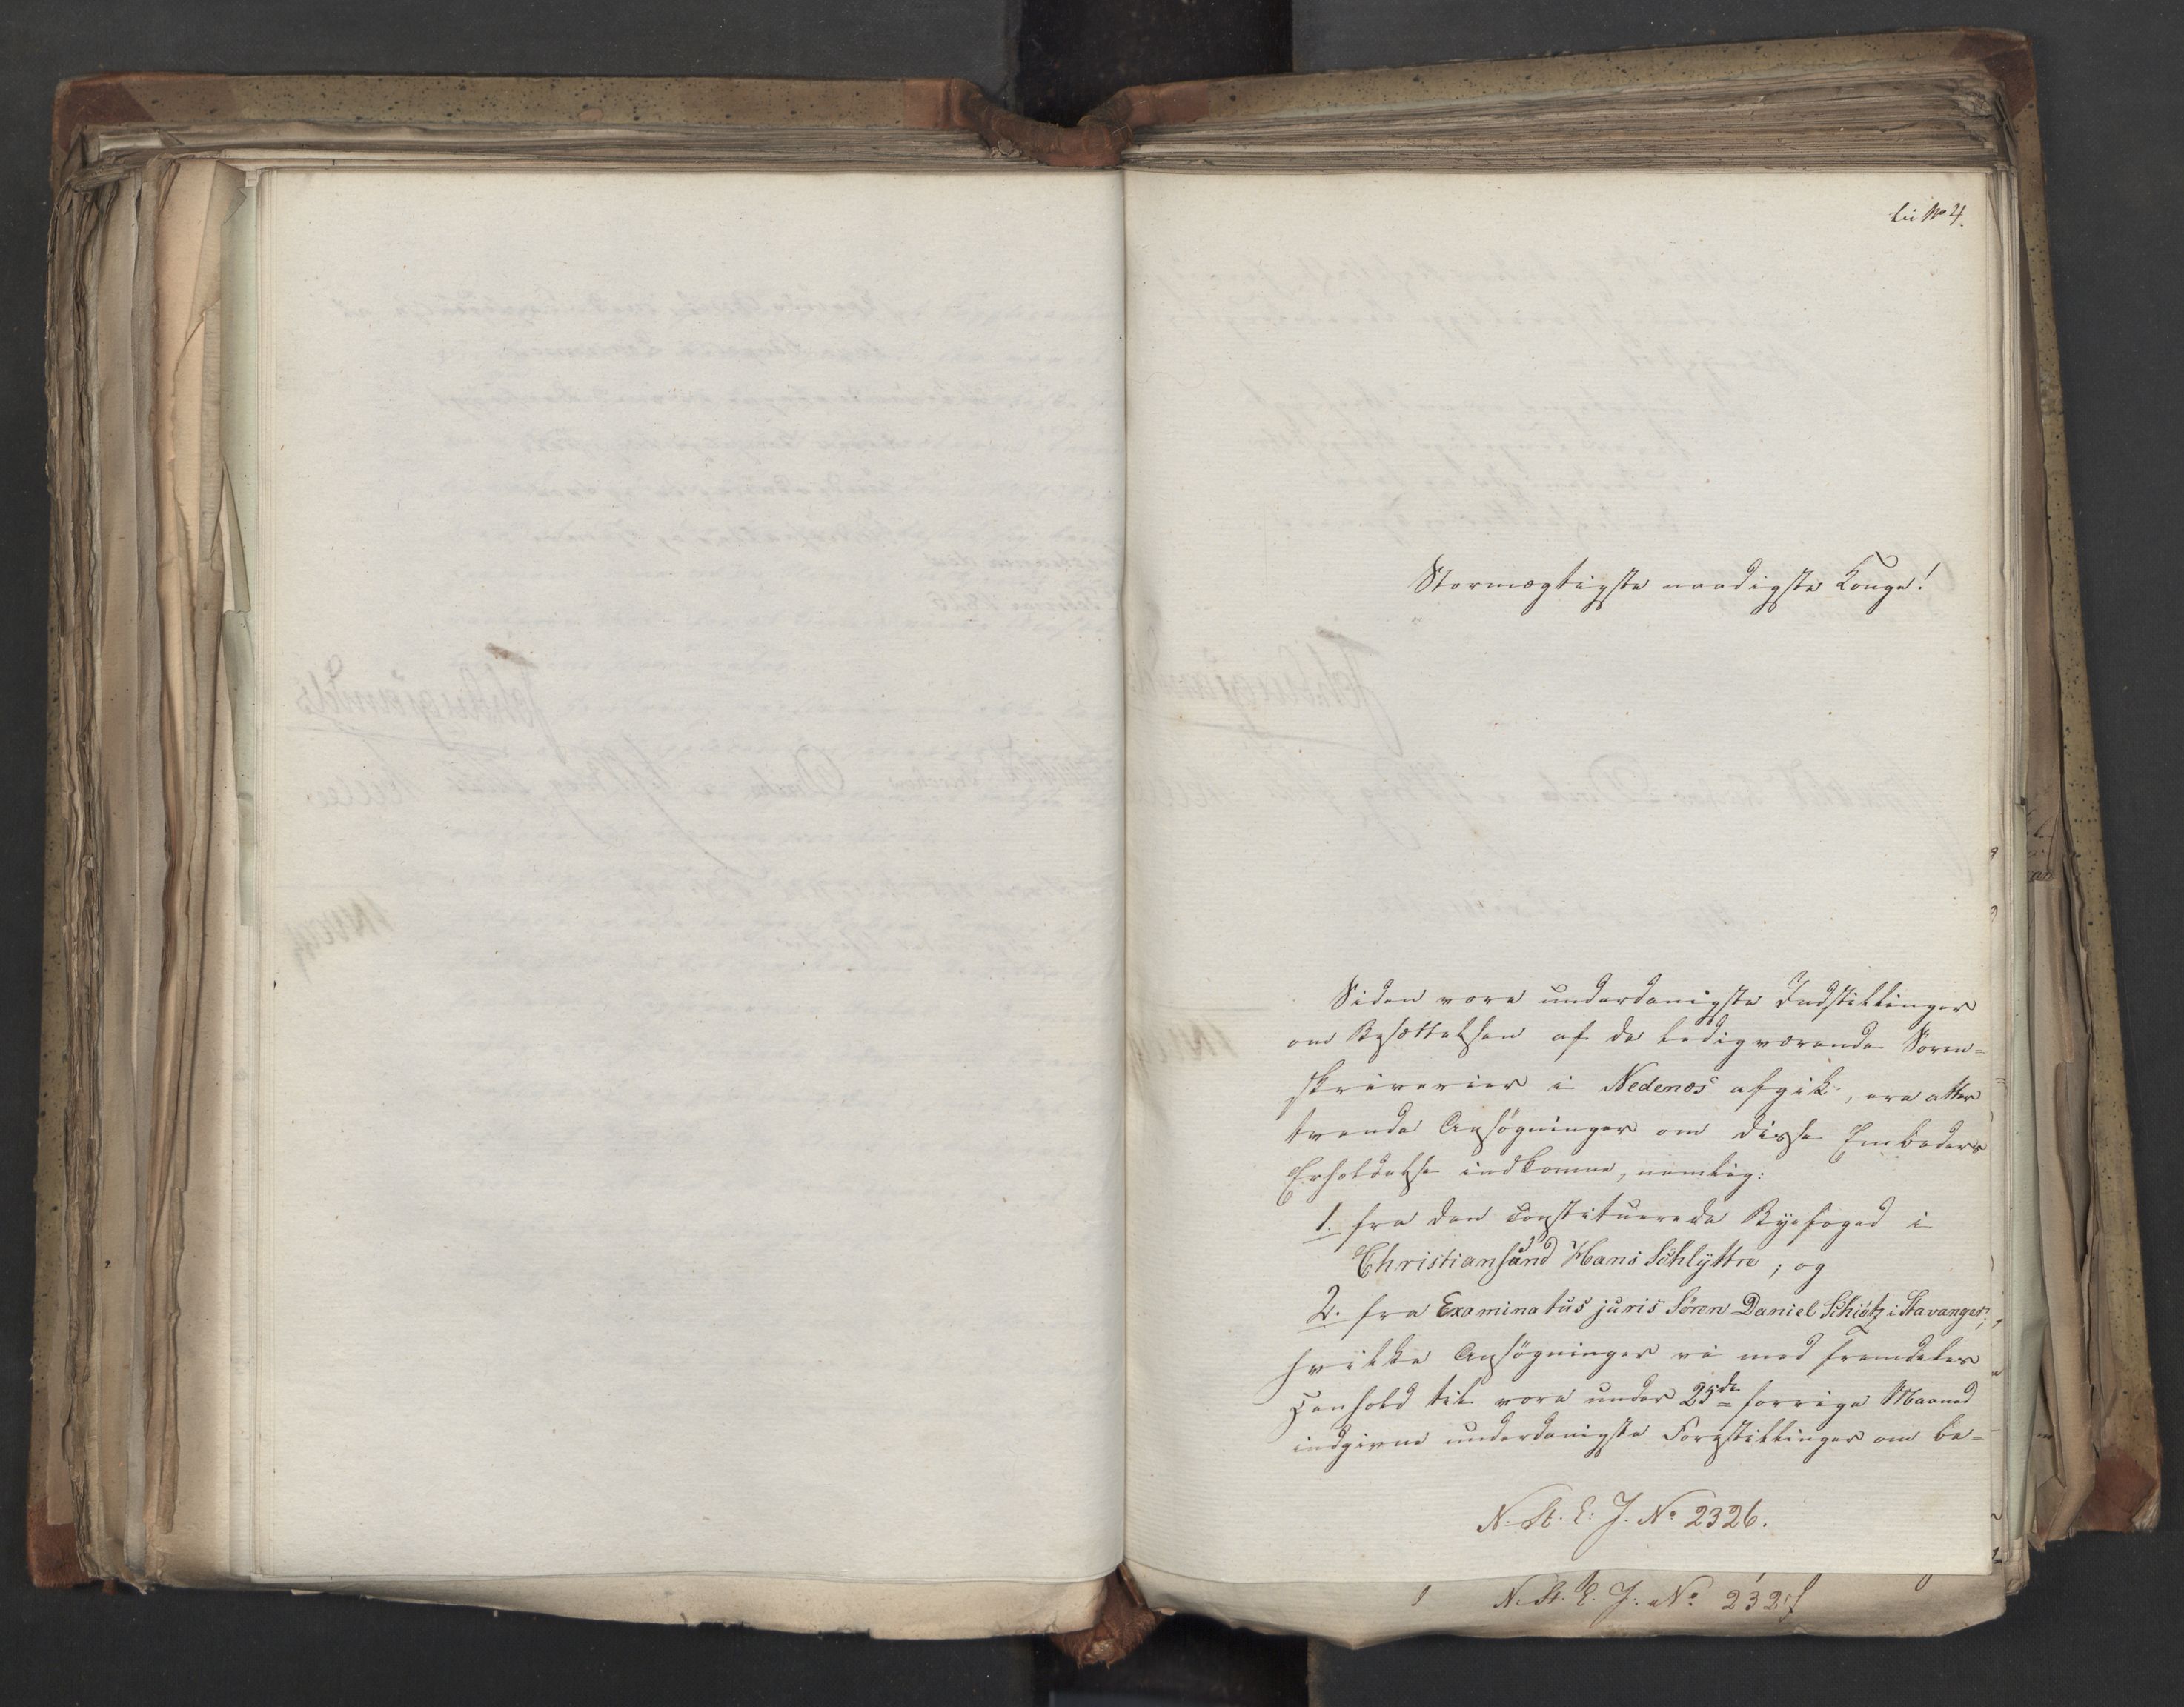 Lit No 4.
Stormægtigste naadigste Konge!
Siden vore underdanigste Indstillinger
om Besættelsen af de ledigværende Soren=
skriverier i Nedenæs afgik, ere atter
tvende Ansøgninger om disse Embeders
Erholdelse indkomne, nemlig:
1. fra den constituerede Byefoged i
Christiansund Hans Schlytter; og
2. fra Examinatus juris Sören Daniel Schiøtz i Stavanger;
hvilke Ansøgninger vi med fremdeles
Henhold til vore under 25de forrige Maaned
indgivne underdanigste Forestillinger om be=
N. St. E. J. No 2326.
N. St. E. J. No 2327